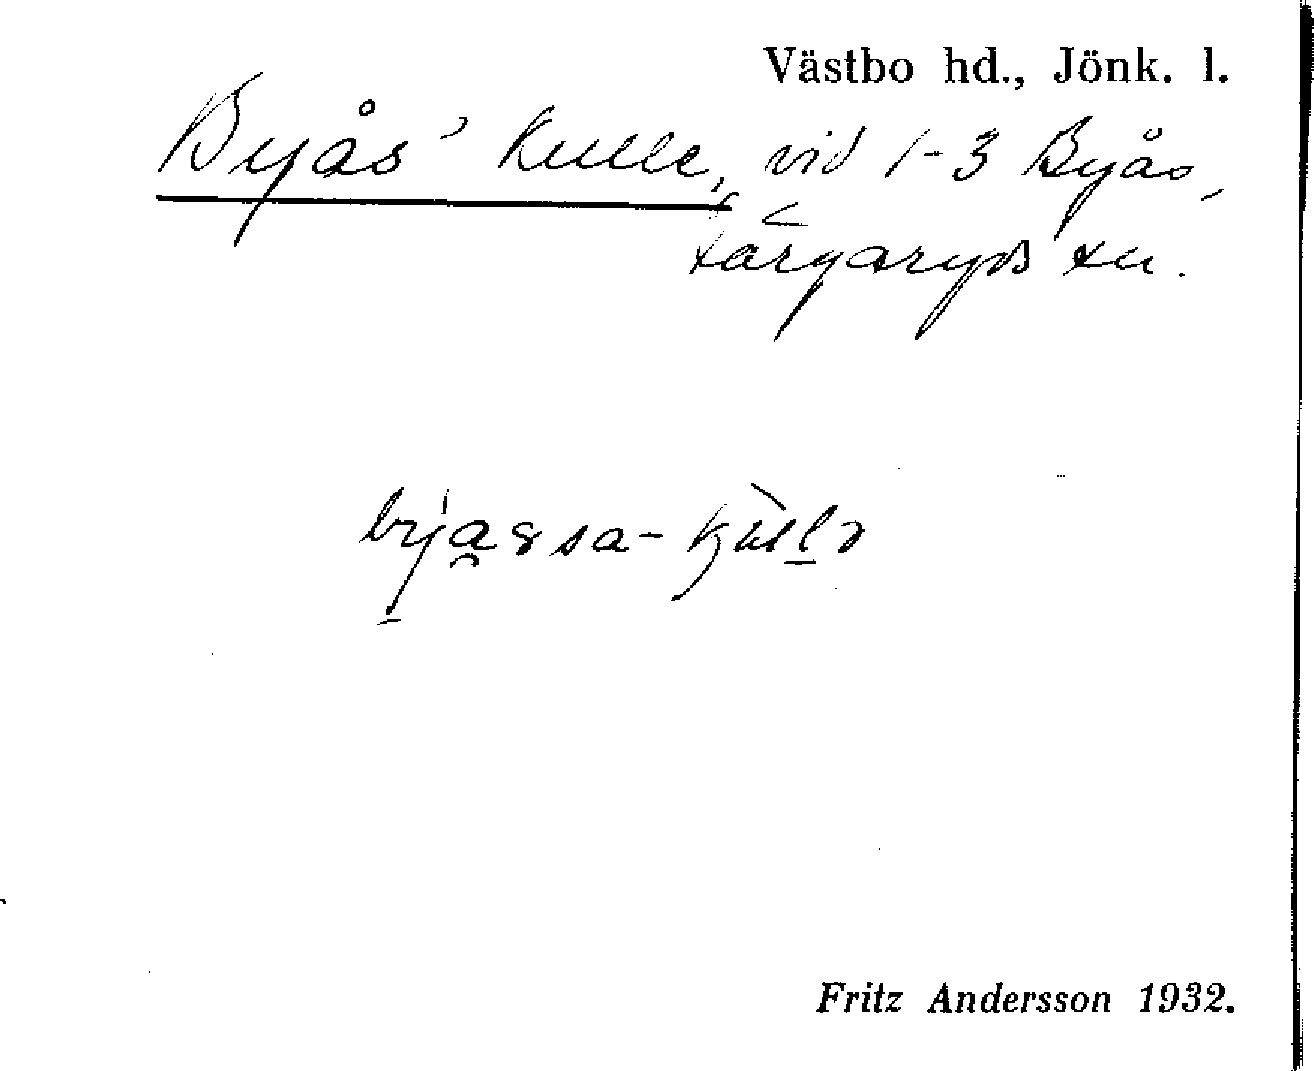 Västbo hd., Jönk. l.
Byås' kulle, vid 1-3 Byås,
Kärgaryds sn.
Fritz Andersson 1932.